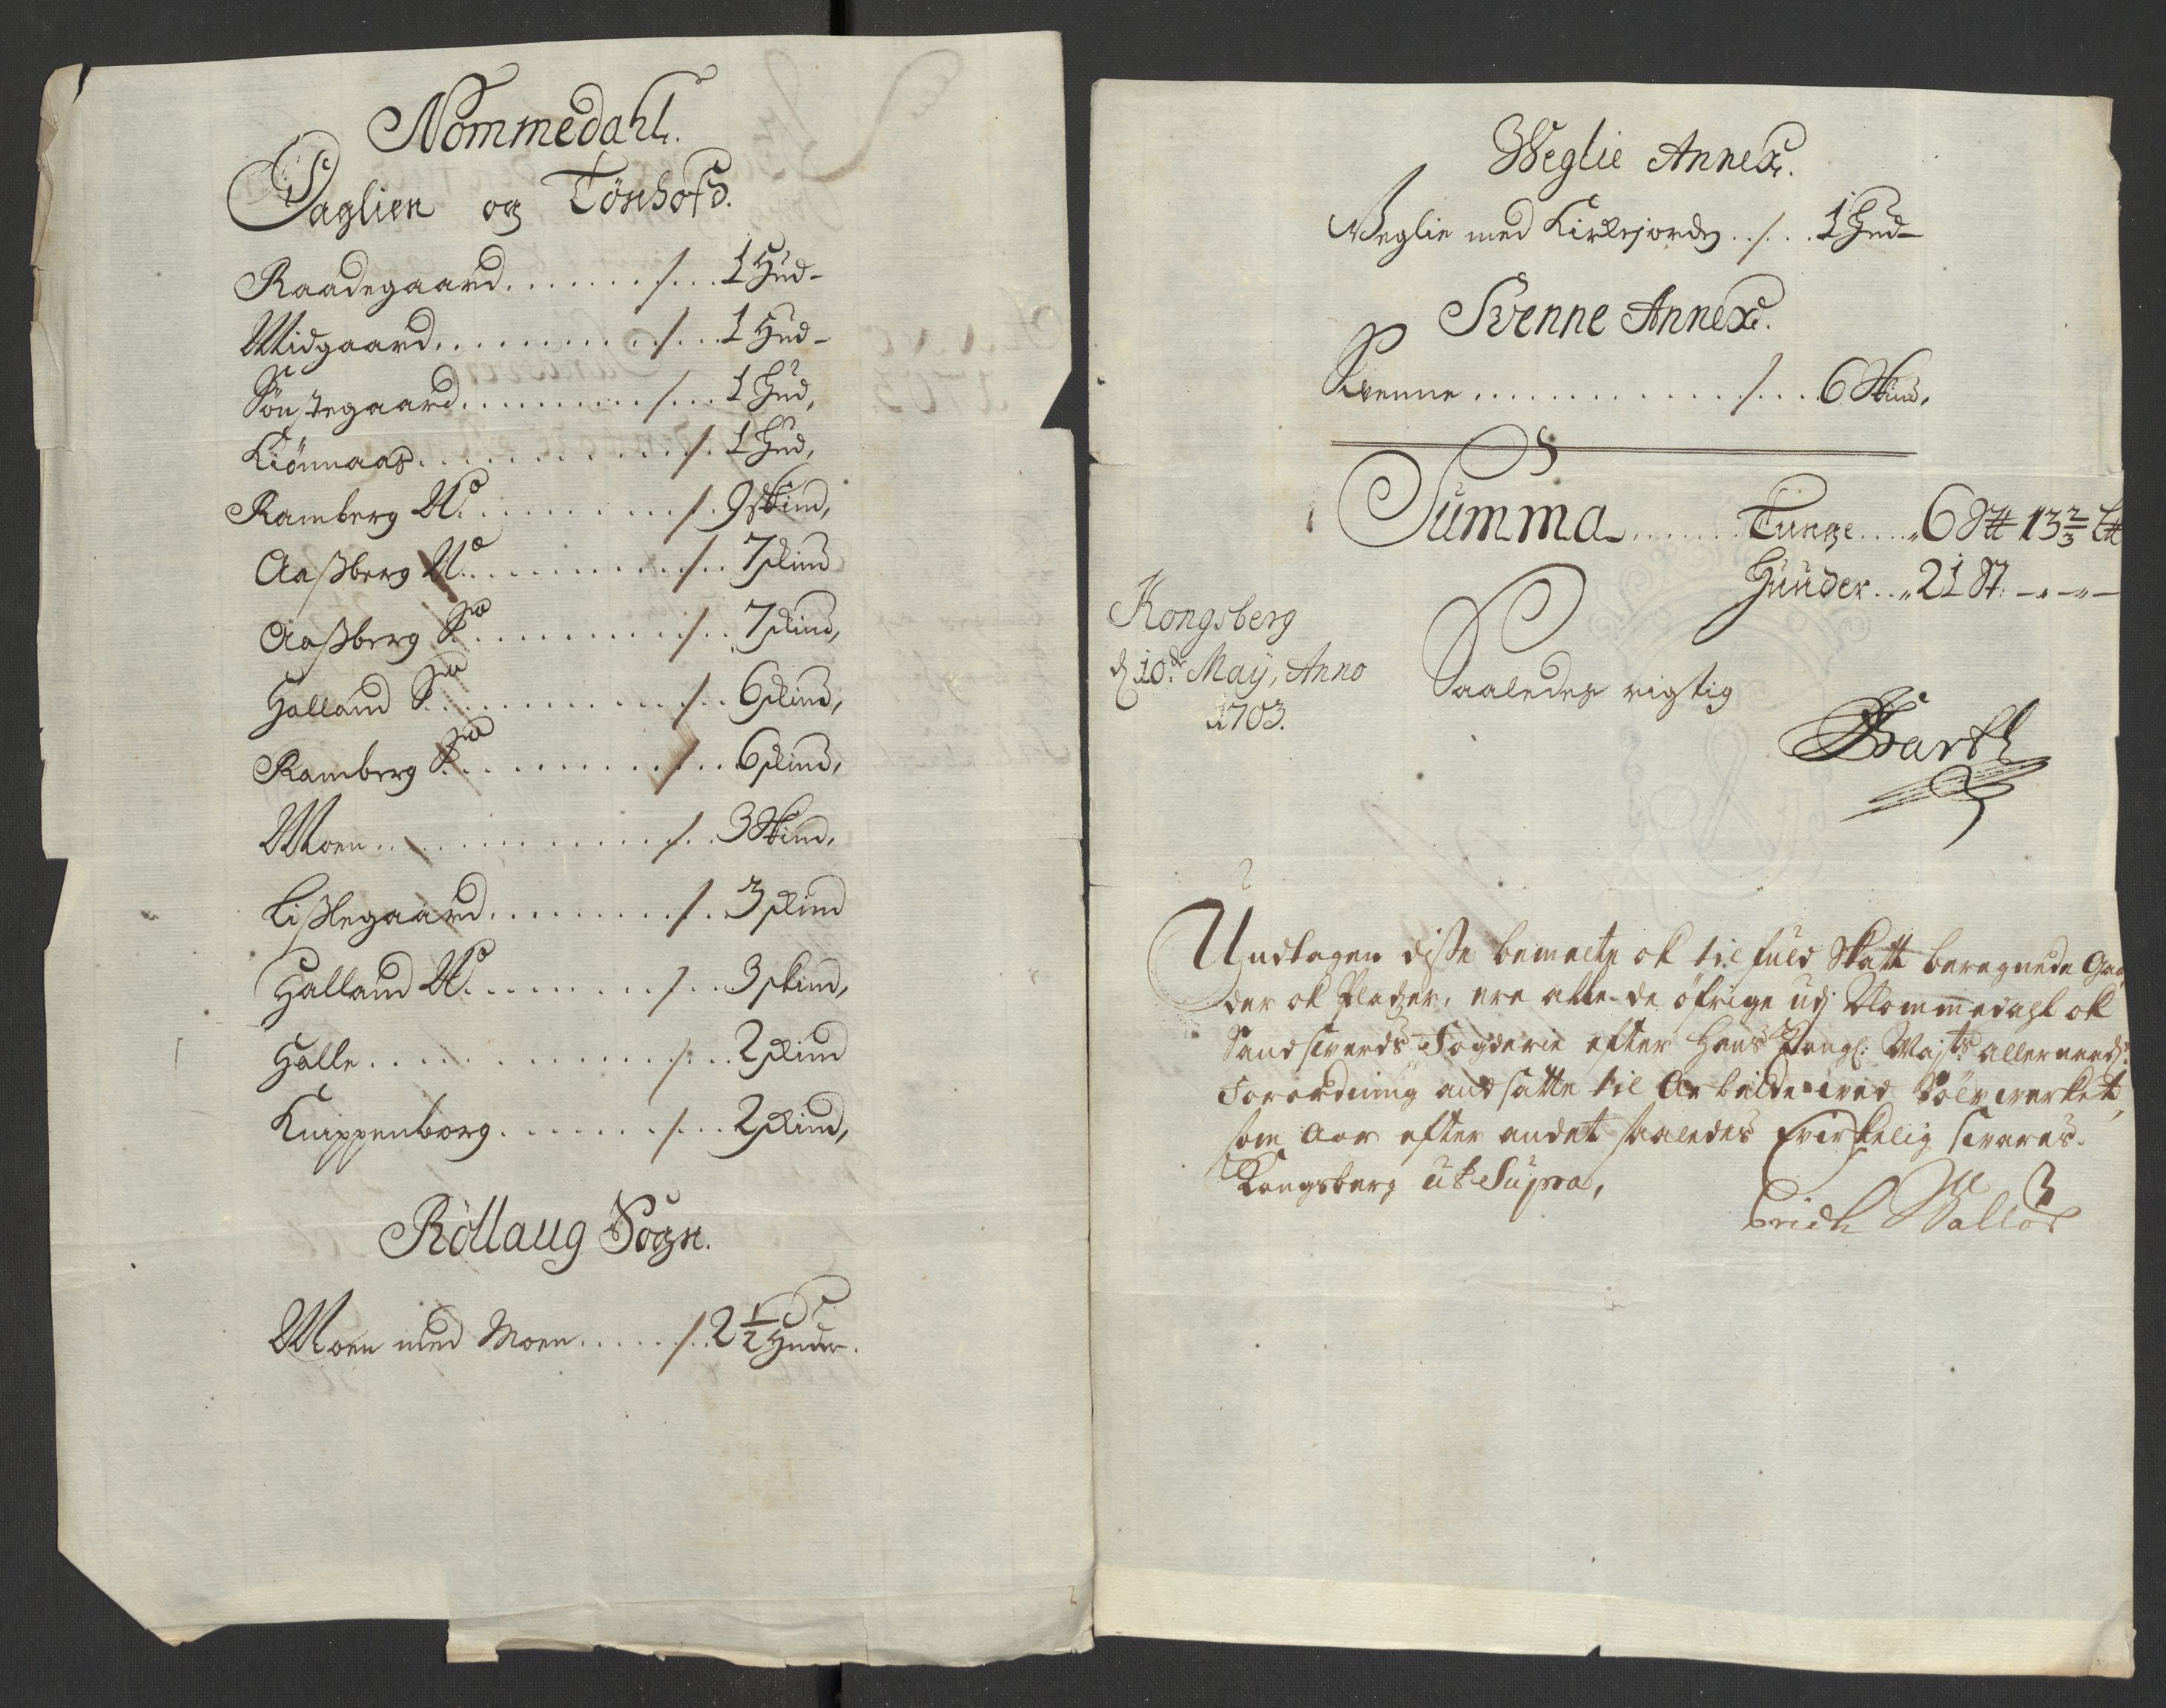 Nommedahl.
Daglien og Tönhofs.
Raadegaard . . . . . . . /. . . 1 Hud-
Midgaard . . . . . . . . . . . /. . . 1 Hud-
Sönstegaard . . . . . . . . . /. . . 1 Hud,
Kiönnaas . . . . . . . . . . . . /. 1 Hud,
Ramberg N: . . . . . . . . . /. 9 skind,
Aaßberg N: . . . . . . . . . . /. . 7 skind
Aaßberg S: . . . . . . . . . . /. . 7 skind,
Halland S: . . . . . . . . . . . /. . 6 skind,
Ramberg S: . . . . . . . . . /. . . 6 skind,
Moen . . . . . . . . . . . . . . /. . 3 Skind,
Lißlegaard . . . . . . . . . /. . 3 skind
Halland N: . . . . . . . . /. . 3 skind,
Halle . . . . . . . . . . . . . /. . . 2 skind
Knippenborg . . . . . . . /. . . 2 skind,
Rollaug Sogn.
Moen med Moen . . . . . /. . 2 1/2 Huder.
Weglie Annex.
Weglie med Kirkejorden . . /. . . 1 Hud-
Svenne Annex.
Svenne . . . . . . . . . . . . . /. . . . 6 Skind,
Summa . . . . . . . Tunge . . . . „ 6 S℔ 13 2/3 L℔
Huuder . . „ 21 St: -„-„-
Kongsberg
d 10de Maÿ, Anno
1703.
Saaledes rigtig
Barth
Undtagen disse bemelte ok til fuld Skatt beregnede Gaar
der ok Pladzer, ere alle de öfrige udj Nommedahl ok
Sandsverds Fogderie efter Hans Kongl: Maj:ts allernaads:
Forordning andsatte til Arbeide ved Sölvverket,
som Aar efter andet saaledes virkelig svares.
Kongsberg ut Supra,
Erich